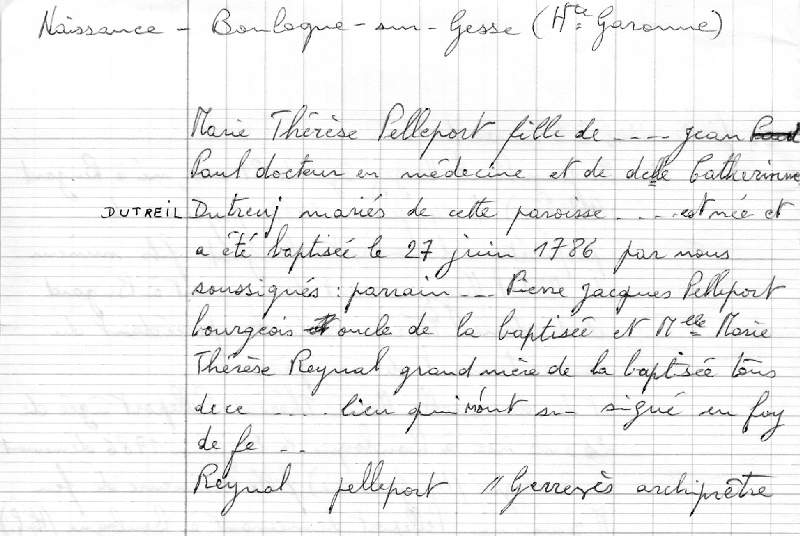 Naissance - Boulogne-sur-Gesse (Hte Garonne)
Marie Thérèse Pelleport fille de .... Jean
Paul docteur en médecine et de delle Catherinne
DUTREIL Dutreuj mariés de cette paroisse .... est née et
a été baptisée le 27 juin 1786 par nous
soussignés : parrain ... Pierre Jacques Pelleport
bourgeois oncle de la baptisée et Mlle Marie
Thérèse Reynal grand mère de la baptisée tous
de ce .... lieu qui m'ont signé en foy
de fe ..
Reynal pelleport // archiprêtre